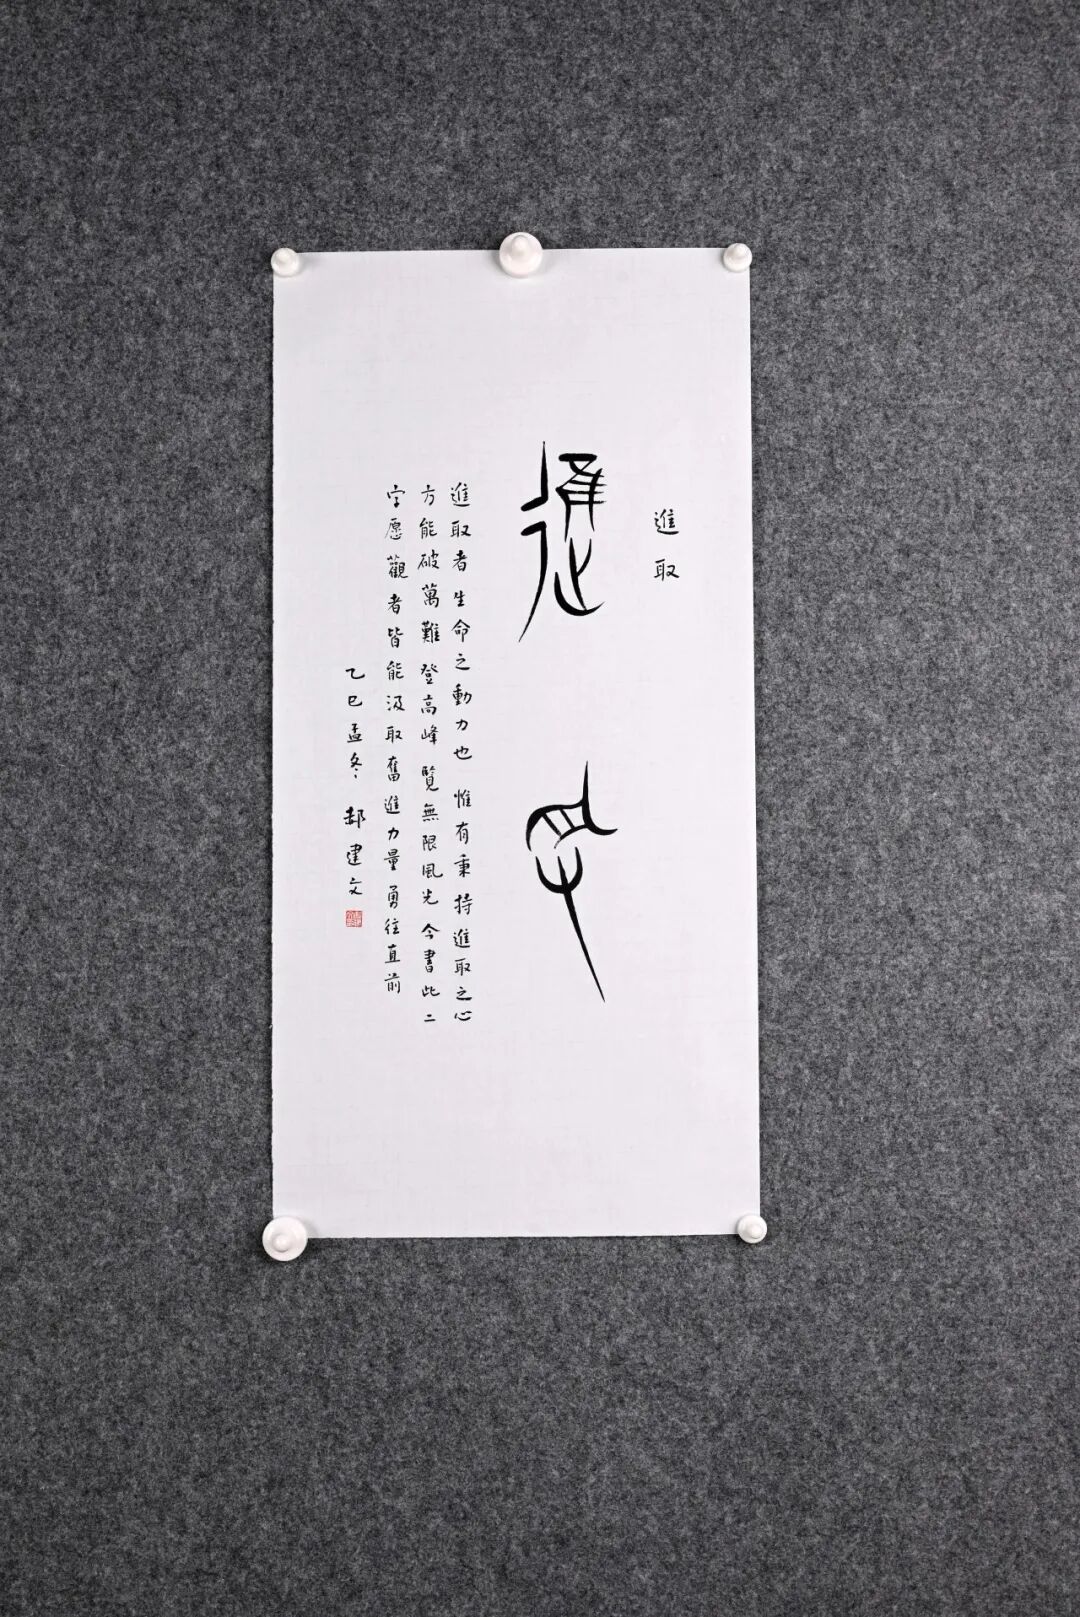 進取
進取
進取者生命之動力也惟有秉持進取之心
方能破萬難登高峰覽無限風光今書此二
字愿觀者皆能汲取奮進力量勇往直前
乙巳孟冬 郝建文